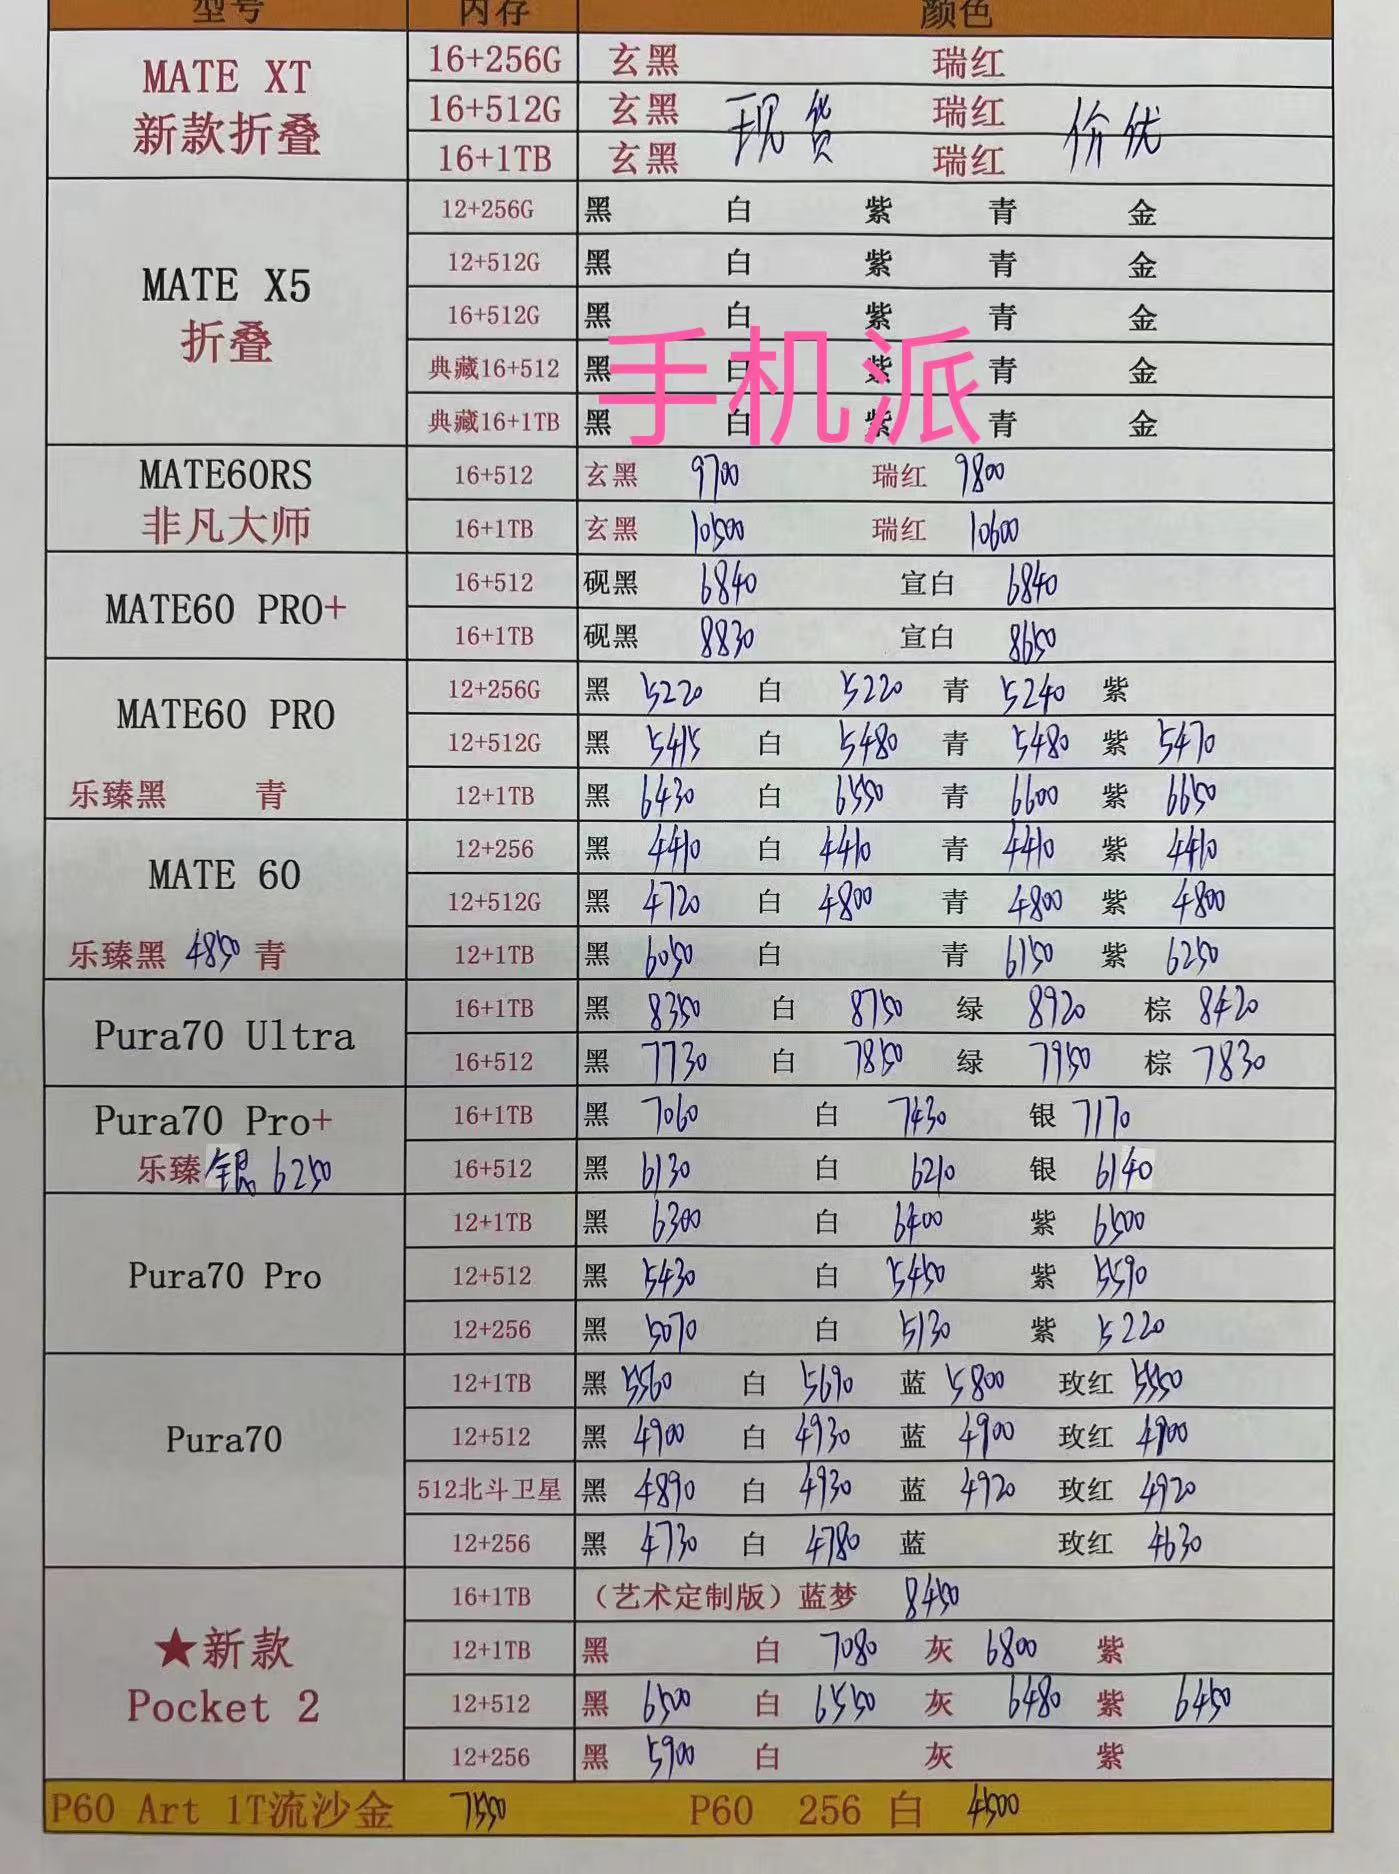 型号 内存 颜色
MATE XT 新款折叠 16+256G 玄黑 瑞红
16+512G 玄黑 现货 瑞红 价优
16+1TB 玄黑 瑞红
MATE X5 折叠 12+256G 黑 白 紫 青 金
12+512G 黑 白 紫 青 金
16+512G 黑 白 紫 青 金
手机派
典藏16+512 黑 白 紫 青 金
典藏16+1TB 黑 白 紫 青 金
MATE60RS 16+512 玄黑 9700 瑞红 9800
非凡大师 16+1TB 玄黑 10500 瑞红 10600
MATE60 PRO+ 16+512 砚黑 6840 宣白 6840
16+1TB 砚黑 8830 宣白 8650
MATE60 PRO 12+256G 黑 5220 白 5220 青 5240 紫
12+512G 黑 5415 白 5480 青 5480 紫 5470
乐臻黑 青 12+1TB 黑 6430 白 6550 青 6600 紫 6650
MATE 60 12+256 黑 4410 白 4410 青 4410 紫 4410
12+512G 黑 4720 白 4800 青 4800 紫 4800
乐臻黑 4850 青 12+1TB 黑 6050 白 青 6150 紫 6250
Pura70 Ultra 16+1TB 黑 8350 白 8750 绿 8920 棕 8420
16+512 黑 7730 白 7850 绿 7950 棕 7830
Pura70 Pro+ 16+1TB 黑 7060 白 7430 银 7170
乐臻银 6250 16+512 黑 6130 白 6210 银 6140
Pura70 Pro 12+1TB 黑 6300 白 6400 紫 6500
12+512 黑 5430 白 5450 紫 5590
12+256 黑 5070 白 5130 紫 5220
Pura70 12+1TB 黑 5560 白 5690 蓝 5800 玫红 5550
12+512 黑 4900 白 4930 蓝 4900 玫红 4900
512北斗卫星 黑 4890 白 4930 蓝 4920 玫红 4920
12+256 黑 4730 白 4780 蓝 玫红 4630
★新款 Pocket 2 16+1TB （艺术定制版）蓝梦 8450
12+1TB 黑 白 7080 灰 6800 紫
12+512 黑 6500 白 6550 灰 6480 紫 6450
12+256 黑 5900 白 灰 紫
P60 Art 1T流沙金 7550 P60 256 白 4500